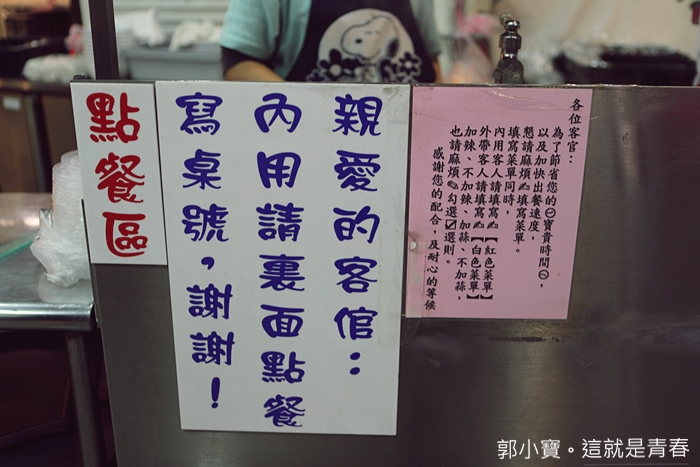 點餐區
親愛的客倌：
內用請裏面點餐
寫桌號，謝謝！
各位客官：
為了節省您的寶貴時間，
以及加快出餐速度，
懇請麻煩✍填寫菜單。
填寫菜單同時，
內用客人請填寫✍【紅色菜單】
外帶客人請填寫✍【白色菜單】
加辣、不加辣、加蒜、不加蒜，
也請麻煩✍勾選☑選則。
感謝您的配合，及耐心的等候
郭小寶。這就是青春